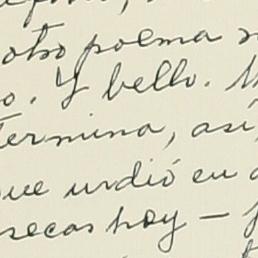 otro poema
o. Y bello.
termina, así,
que urdió en
secas hoy —